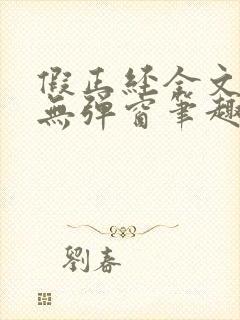 假正經全文
無彈窗筆趣
劉春